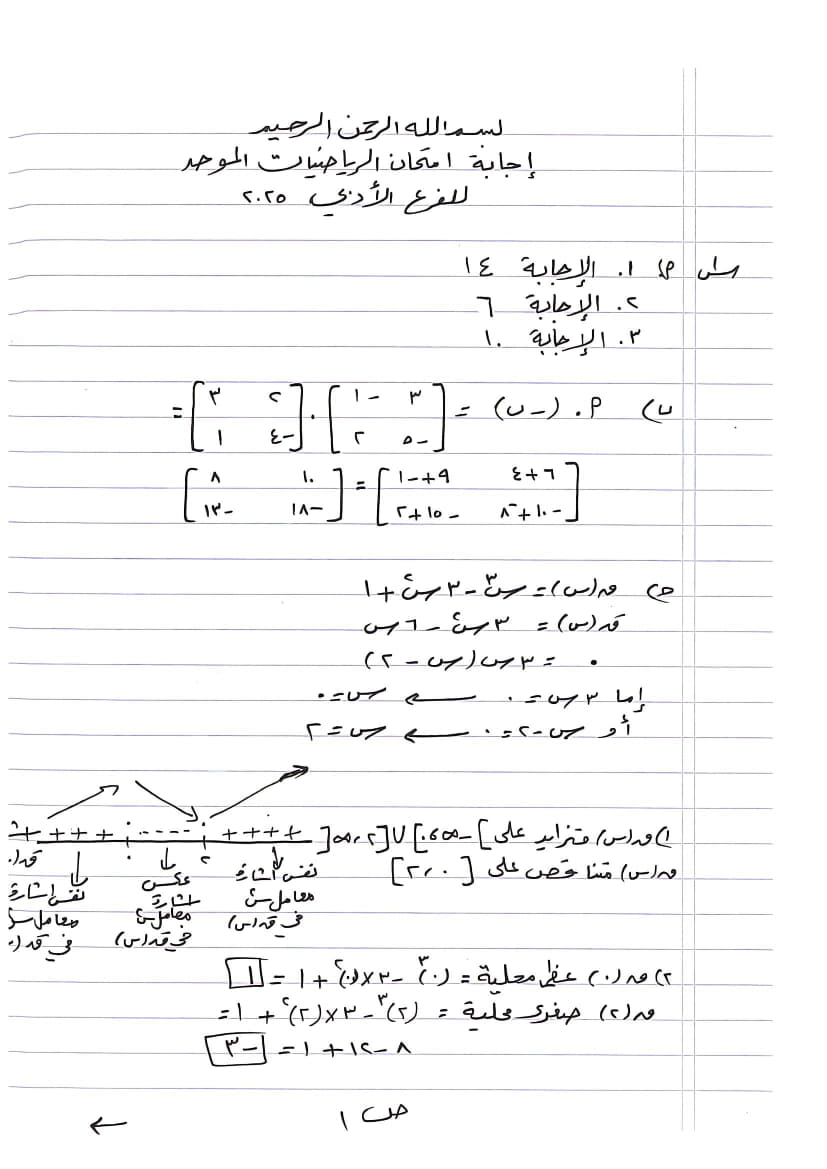 بسم الله الرحمن الرحيم
إجابة امتحان الرياضيات الموحد
للفرع الأدبي ٢٠٢٥
س١ أ) ١. الإجابة ١٤
٢. الإجابة ٦
٣. الإجابة ١٠
ب) أ . (-ب) = [٣ -١ ؛ -٥ ٢] . [٢ ٣ ؛ -٤ ١] =
[٦+٤ ٩+-١ ؛ -١٠+-٨ -١٥+٢] = [١٠ ٨ ؛ -١٨ -١٣]
ج) ق(س) = س³ - ٣س² + ١
قَ(س) = ٣س² - ٦س
= ٣س(س - ٢) = ٠
إما ٣س = ٠ ← س = ٠
أو س - ٢ = ٠ ← س = ٢
١) ق(س) متزايد على ]-∞، ٠] ∪ [٢، ∞[ ++++ ٢ ---- ٠ ++++
ق(س) متناقص على [٠، ٢]
نفس إشارة معامل س² في قَ(س)
عكس إشارة معامل س² في قَ(س)
نفس إشارة معامل س² في قَ(
٢) ق(٠) عظمى محلية = (٠)³ - ٣×(٠)² + ١ = ١
ق(٢) صغرى محلية = (٢)³ - ٣×(٢)² + ١ =
٨ - ١٢ + ١ = -٣
ص ١ ←